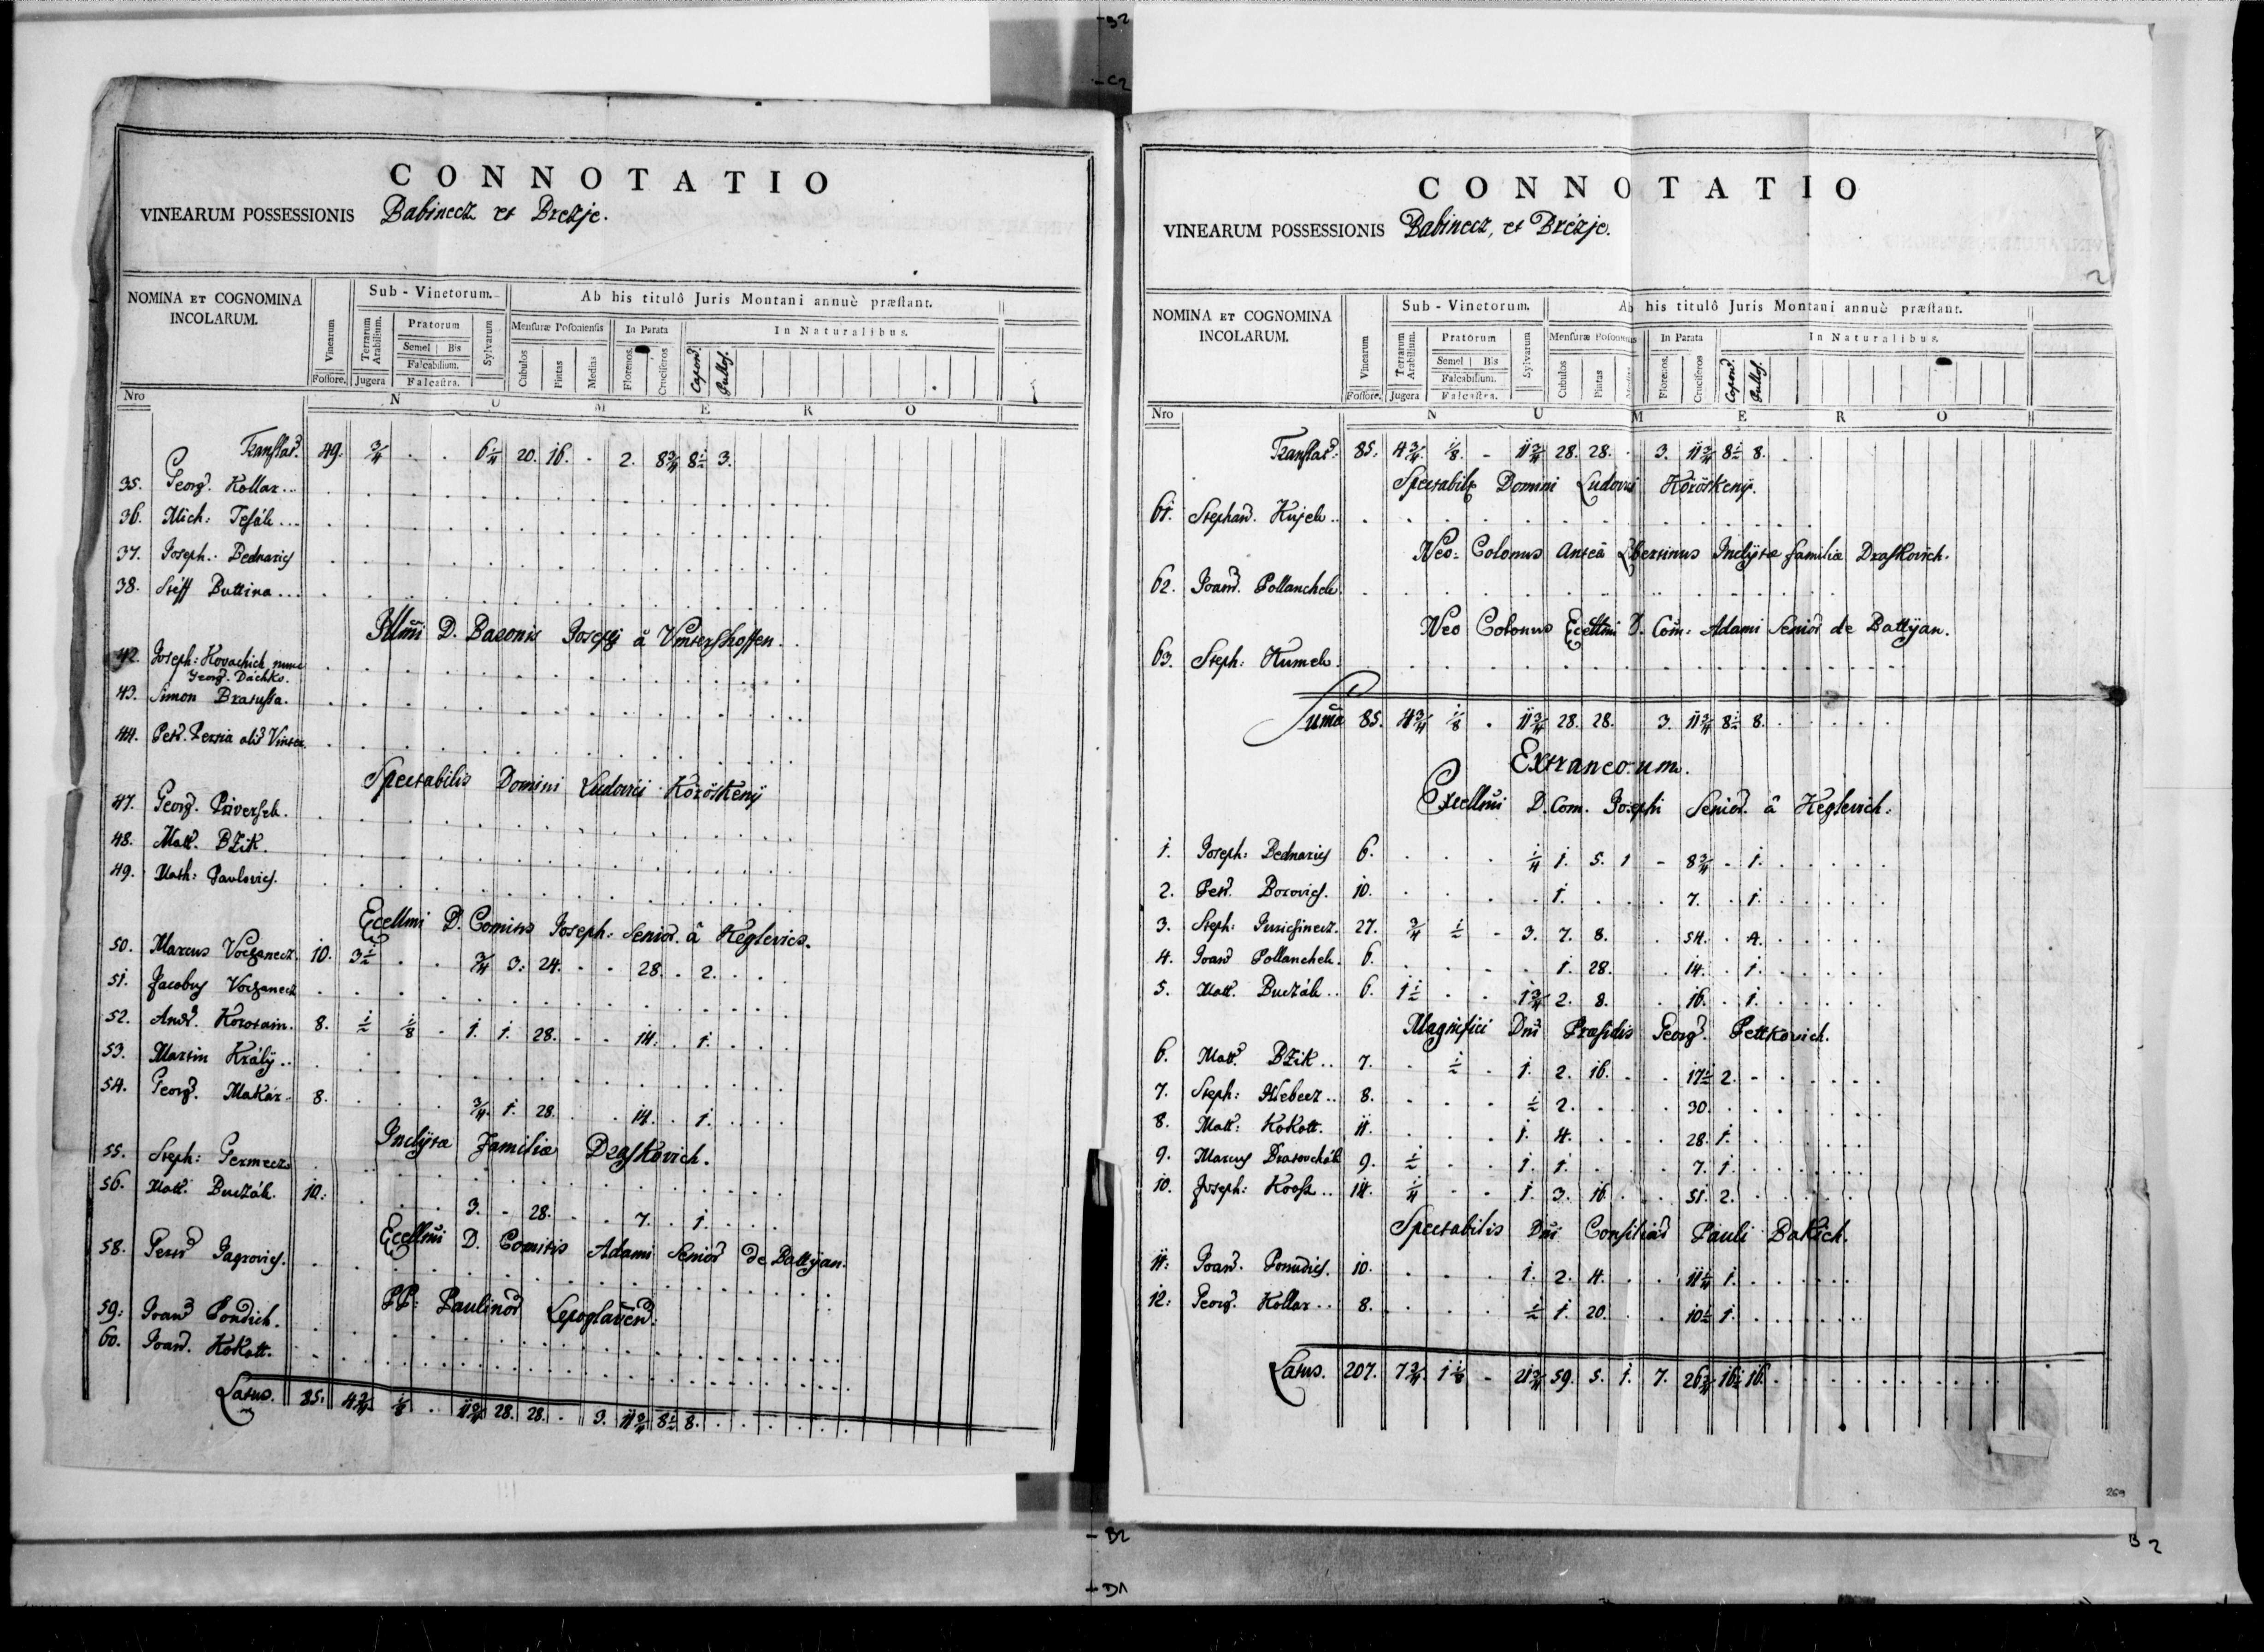 CONNOTATIO
VINEARUM POSSESSIONIS Babinecz et Brezje.
NOMINA ET COGNOMINA INCOLARUM.
Vinearum Fossore.
Sub-Vinetorum.
Terrarum Arabilium. Jugera
Pratorum Semel Bis Falcabilium. Falcastra.
Sylvarum
Ab his titulô Juris Montani annuè præstant.
Mensuræ Posoniensis Cubulos Pintas Medias
In Parata Florenos. Cruciferos
In Naturalibus. Capon. Pullos.
Nro N U M E R O
Translat. 49. 3/4 . . 6 1/4 20. 16. - 2. 8 3/4 8 1/2 3.
35. Georg. Kollar...
36. Mich: Tesák...
37. Joseph. Bednarics
38. Steff Buttina...
Illmi D. Baronis Josephi â Vintershoffen.
42. Joseph: Kovachich nunc
Georg. Dachko.
43. Simon Bratussa.
44. Petr. Persia alis Vinter
Spectabilis Domini Ludovici Köröskeny
47. Georg. Priversek.
48. Matt. Bzik.
49. Math: Pavlovics.
Ecellmi D. Comitis Joseph: Senior. â Keglevics.
50. Marcus Voczanecz 10. 3 1/2 . . 3/4 3. 24. . . 28. . 2. . .
51. Jacobus Voczanecz
52. Andr. Korotain. 8. 1/2 1/8 - 1. 1. 28. - . 14. . 1. . . .
53. Martin Králÿ..
54. Georg. Makár. 8. . . . 3/4 1. 28. . . 14. . 1. . . .
Inclÿtæ Familiæ Draskovich.
55. Steph: Germecz
56. Matt. Buczák. 10. . . . 3. - 28. - . 7. . 1. . . .
Ecellmi D. Comitis Adami Senior de Battÿan.
58. Petr Jagrovics.
PP: Paulinor Lepoglaven.
59: Joan Pondich.
60. Joan. Kokott.
Latus. 85. 4 3/4 1/8 . 11 3/4 28. 28. . 3. 11 3/4 8 1/2 8.
CONNOTATIO
VINEARUM POSSESSIONIS Babinecz, et Brézje.
2
NOMINA ET COGNOMINA INCOLARUM.
Vinearum Fossore.
Sub-Vinetorum.
Terrarum Arabilium. Jugera
Pratorum Semel Bis Falcabilium. Falcastra.
Sylvarum
Ab his titulô Juris Montani annuè præstant.
Mensuræ Posoniensis Cubulos Pintas Medias
In Parata Florenos. Cruciferos
In Naturalibus. Capon. Pullos.
Nro N U M E R O
Translat: 85. 4 3/4 1/8 - 11 3/4 28. 28. . 3. 11 3/4 8 1/2 8.
Spectabilis Domini Ludovici Köröskenÿ.
61. Stephan. Kujek..
Neo-Colonus Anteâ Libertinus Inclÿtæ familiæ Draskovich.
62. Joann. Pollanchek.
Neo Colonus Ecellmi D. Com: Adami Senior de Battÿan.
63. Steph: Kumek.
Suma 85. 4 3/4 1/8 . 11 3/4 28. 28. 3. 11 3/4 8 1/2 8.
Extraneorum.
Excellmi D. Com. Josephi Senior. â Keglevich:
1. Joseph: Bednarics 6. . . . 1/4 1. 5. 1 - 8 3/4 - 1.
2. Petr. Borovics. 10. . . . . 1. . . . 7. . 1.
3. Steph: 27. 3/4 1/2 - 3. 7. 8. . 54. . 4.
4. Joan Pollanchek. 6. . . . . 1. 28. . 14. . 1.
5. Matt. Buczák.. 6. 1 1/2 . . 1 3/4 2. 8. . 16. . 1.
Magnifici Dni Præsidis Georg. Pettkovich.
6. Matt. Bzik.. 7. . 1/2 . 1. 2. 16. . . 17 1/2 2.
7. Steph: Hlebecz.. 8. . . . 1/2 2. . . . 30.
8. Matt: Kokott. 11. . . . 1. 4. . . . 28. 1.
9. Marcus Bratovchák 9. 1/2 . . 1. 1. . . . 7. 1.
10. Joseph: Kross.. 14. 1/4 . . 1. 3. 16. . . 51. 2.
Spectabilis Dni Consiliar Pauli Bakich.
11: Joan. Ponudics. 10. . . . 1. 2. 4. . . 11 1/4 1.
12: Georg. Kollar.. 8. . . . 1/2 1. 20. . . 10 1/2 1.
Latus. 207. 7 3/4 1 1/8 - 21 3/4 59. 5. 1. 7. 26 3/4 16 1/2 16.
269
B2
D1
B2